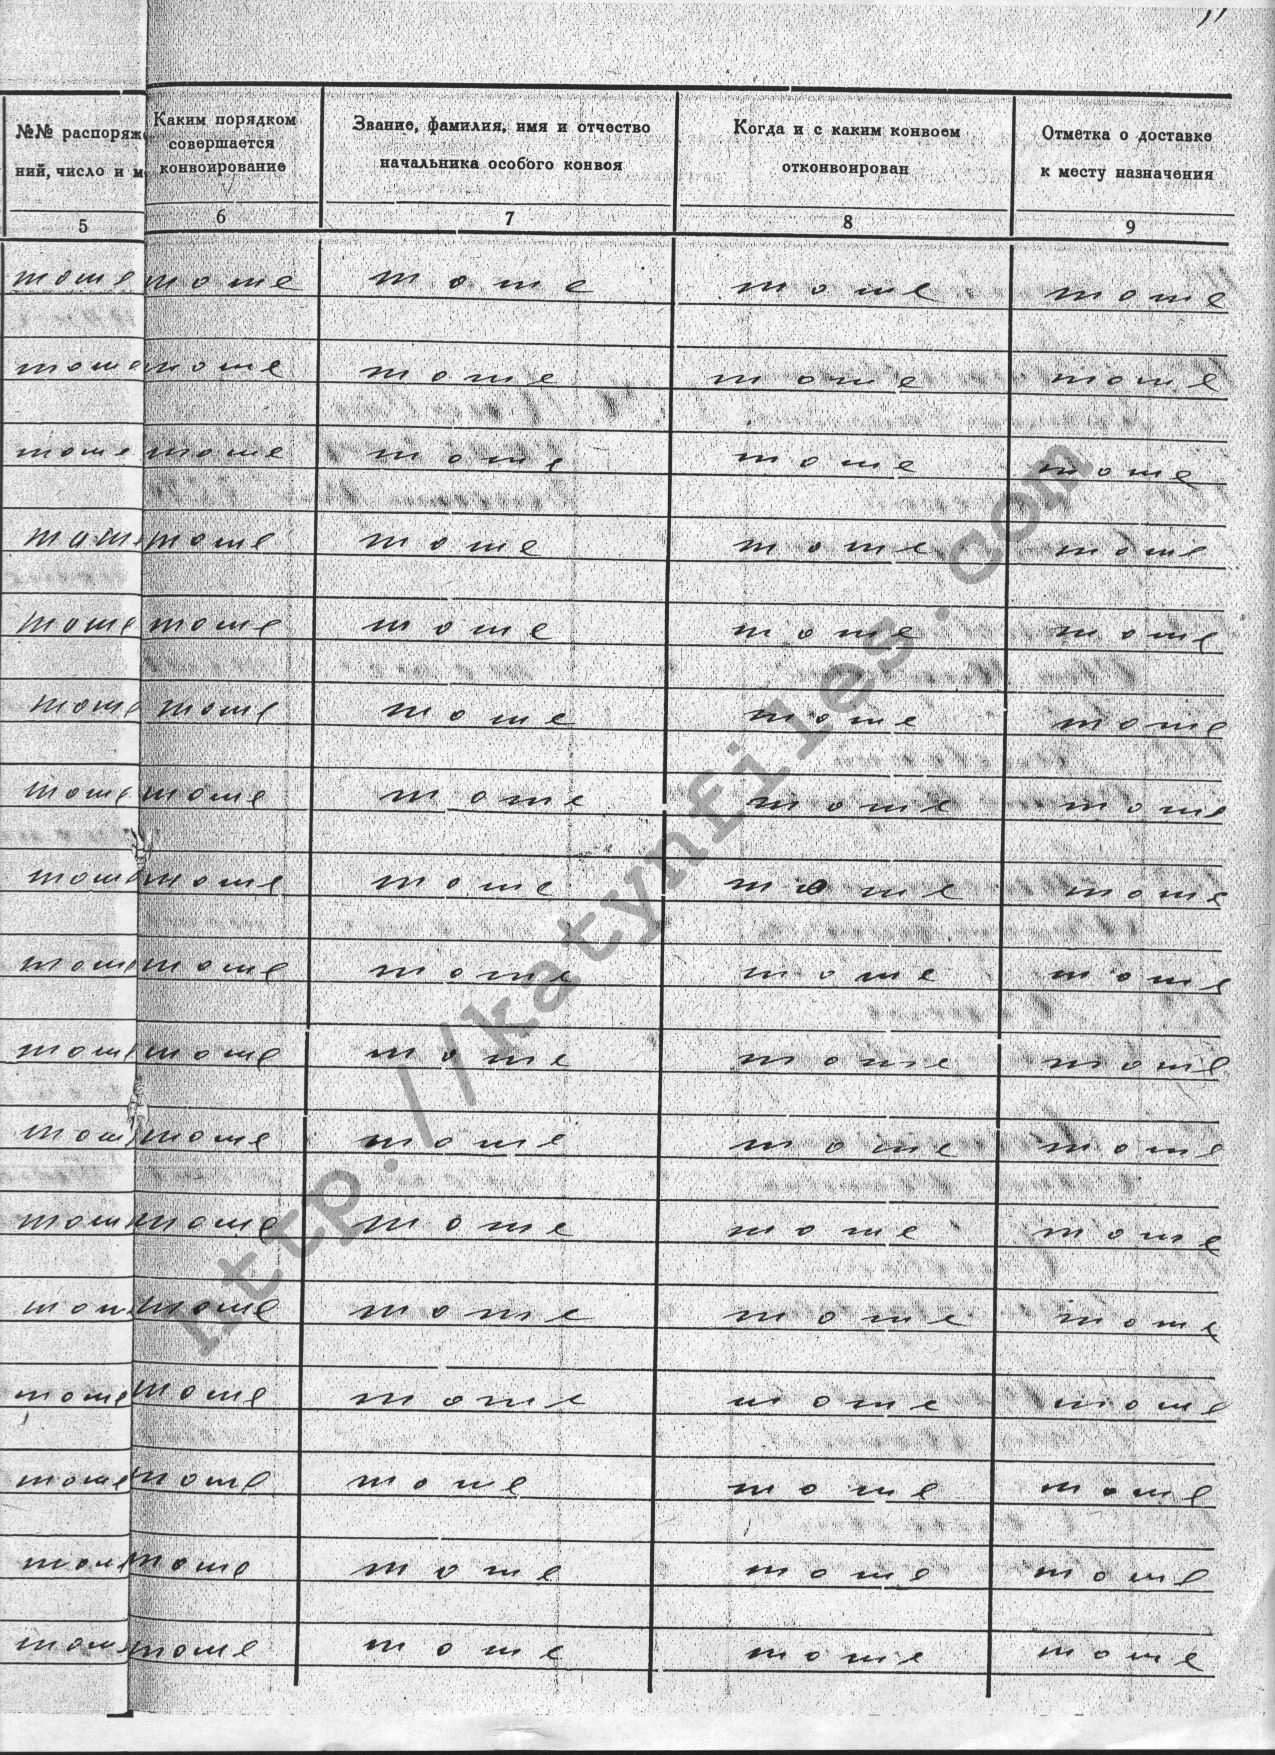 №№ распоряже
ний, число и м
Каким порядком
совершается
конвоирование
Звание, фамилия, имя и отчество
начальника особого конвоя
Когда и с каким конвоем
отконвоирован
Отметка о доставке
к месту назначения
5 6 7 8 9
тоже тоже тоже тоже тоже
тоже тоже тоже тоже тоже
тоже тоже тоже тоже тоже
тоже тоже тоже тоже тоже
тоже тоже тоже тоже тоже
тоже тоже тоже тоже тоже
тоже тоже тоже тоже тоже
тоже тоже тоже тоже тоже
тоже тоже тоже тоже тоже
тоже тоже тоже тоже тоже
тоже тоже тоже тоже тоже
тоже тоже тоже тоже тоже
тоже тоже тоже тоже тоже
тоже тоже тоже тоже тоже
тоже тоже тоже тоже тоже
тоже тоже тоже тоже тоже
тоже тоже тоже тоже тоже
http://katynfiles.com